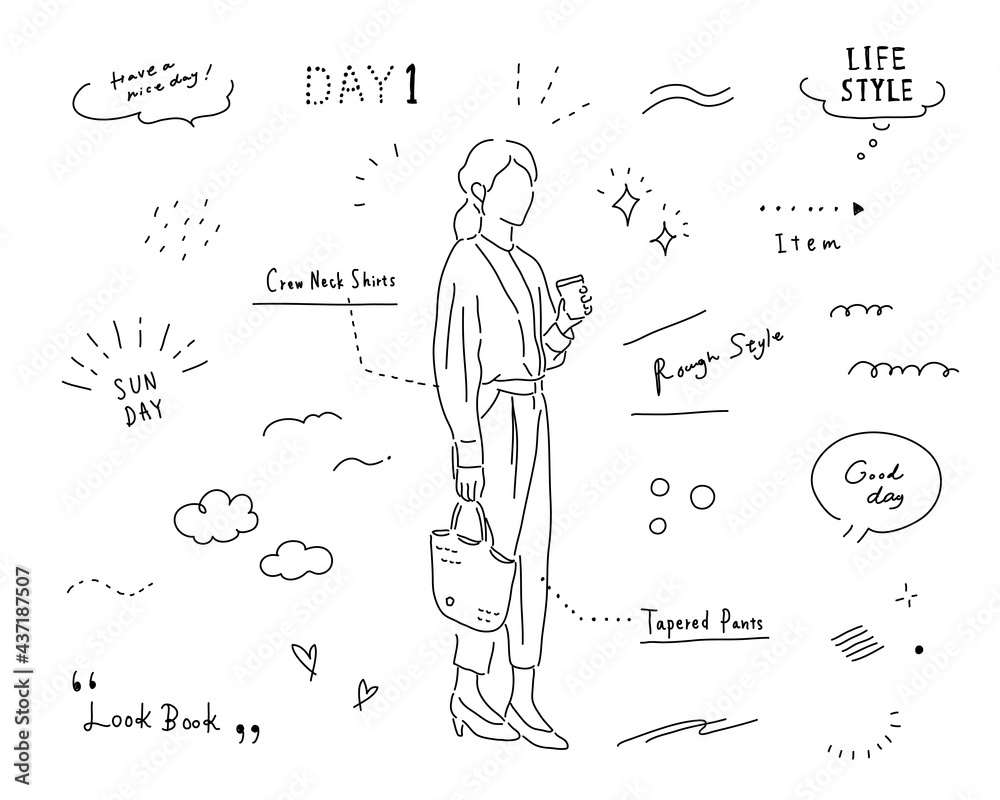 Have a
nice day!
DAY1
LIFE
STYLE
Item
Crew Neck Shirts
Rough Style
SUN
DAY
Good
day
Tapered Pants
“ Look Book „
Adobe Stock | #437187507